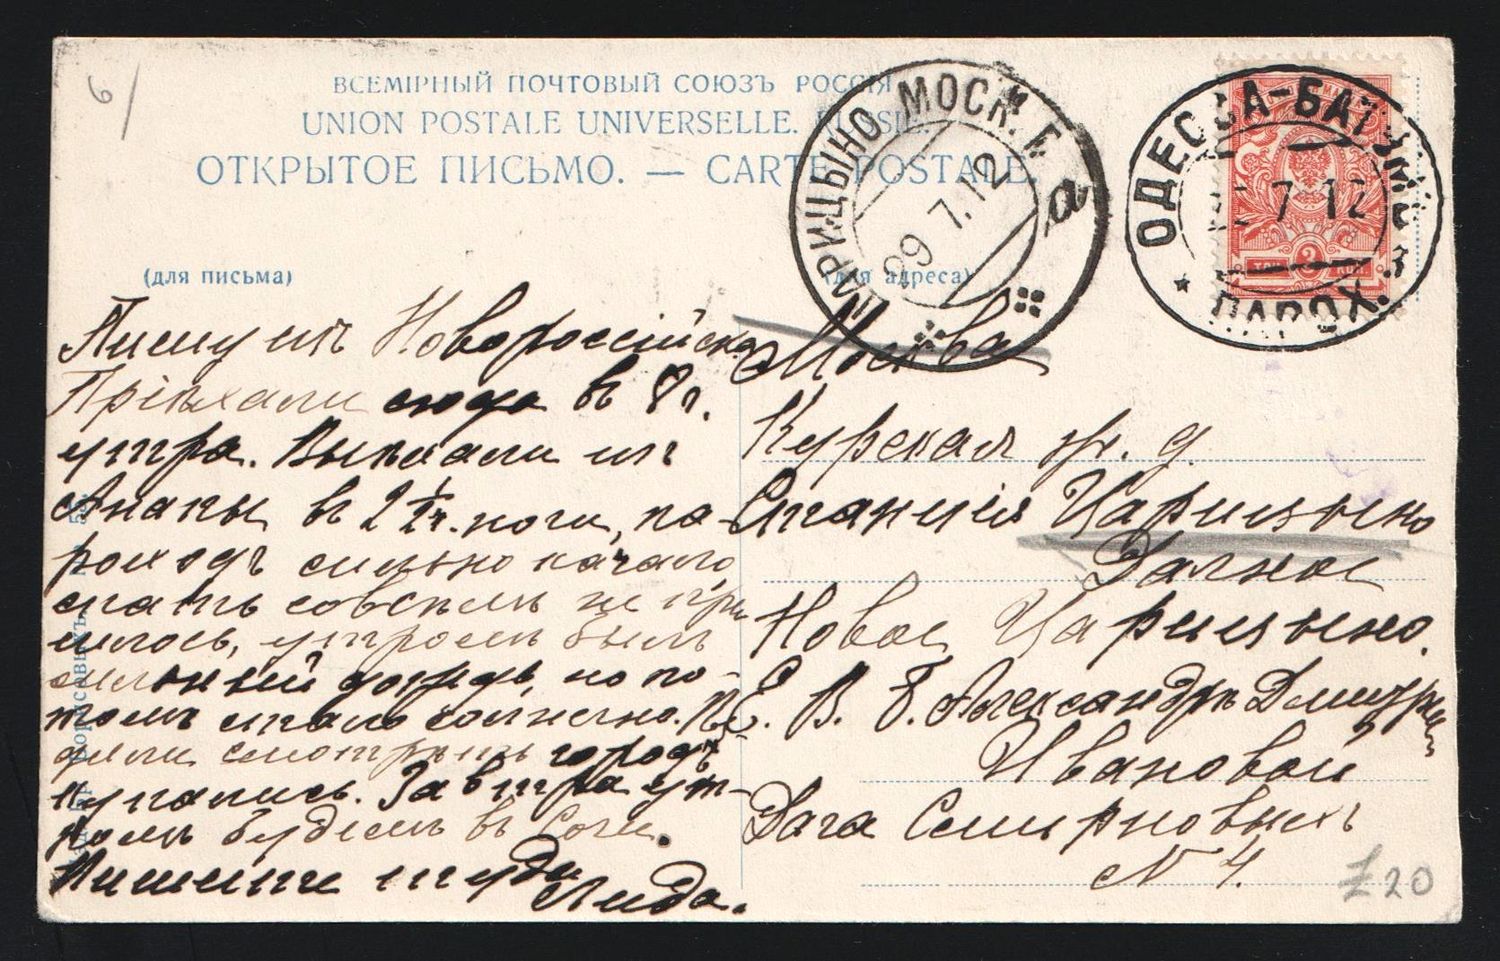 6/
ВСЕМІРНЫЙ ПОЧТОВЫЙ СОЮЗЪ РОССІЯ
UNION POSTALE UNIVERSELLE. RUSSIE.
ОТКРЫТОЕ ПИСЬМО. — CARTE POSTALE.
ЦАРИЦЫНО МОСК. Г.
а
29 7.12
ОДЕССА-БАТУМЪ
7 12
3
ПАРОХ.
(для письма)
(для адреса)
Пишу изъ Новороссійска
Пріѣхали сюда въ 8 ч.
утра. Выѣхали изъ
Анапы въ 2 1/2 ч. ночи, па-
роходъ сильно качало,
спать совсѣмъ не при
шлось, утромъ былъ
сильный дождь, но по-
томъ стало солнечно. Хо
дили смотрѣть городъ,
купались. Завтра ут-
ромъ будемъ въ Сочи.
Пишите туда
Лида.
Москва
Курская ж. д.
Станція Царицыно
Дачное
Новое Царицыно.
Е. В. Б. Александрѣ Дмитріевнѣ
Ивановой
Дача Смирновыхъ
N 4.
£20